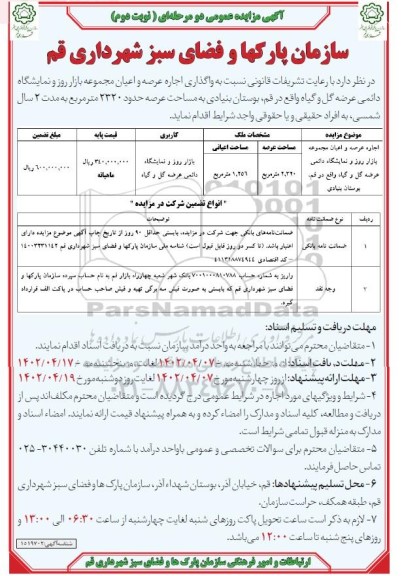 آگهی مزایده عمومی دو مرحله‌ای ( نوبت دوم )
سازمان پارکها و فضای سبز شهرداری قم
در نظر دارد با رعایت تشریفات قانونی نسبت به واگذاری اجاره عرصه و اعیان مجموعه بازار روز و نمایشگاه
دائمی عرضه گل و گیاه واقع در قم، بوستان بنیادی به مساحت عرصه حدود ۲۳۲۰ مترمربع به مدت ۲ سال
شمسی، به افراد حقیقی و یا حقوقی واجد شرایط اقدام نماید.
موضوع مزایده
مشخصات ملک
کاربری
قیمت پایه
مبلغ تضمین
مساحت عرصه
مساحت اعیانی
اجاره عرصه و اعیان مجموعه
بازار روز و نمایشگاه دائمی
عرضه گل و گیاه، واقع در قم،
بوستان بنیادی
۲,۳۲۰ مترمربع
۱,۲۵۶ مترمربع
بازار روز و نمایشگاه
دائمی عرضه گل و گیاه
۳۴۰,۰۰۰,۰۰۰ ریال
ماهیانه
۶۰۰,۰۰۰,۰۰۰ ریال
" انواع تضمین شرکت در مزایده "
ردیف
نوع ضمانت نامه
توضیحات
۱
ضمانت نامه بانکی
ضمانت‌نامه‌های بانکی جهت شرکت در مزایده، بایستی حداقل ۹۰ روز از تاریخ چاپ آگهی موضوع مزایده دارای
اعتبار باشد. (تا کسر دو روز قابل قبول است) شناسه ملی سازمان پارکها و فضای سبز شهرداری قم ۱۴۰۰۳۳۳۱۱۴۲
- کد اقتصادی
۲
وجه نقد
واریز به شماره حساب ۷۰۰۱۰۰۰۸۱۰۷۸۸ بانک شهر شعبه چهارراه بازار قم به نام حساب سپرده سازمان پارکها و
فضای سبز شهرداری قم که بایستی به صورت فیش سه برگی تهیه و فیش صاحب حساب در پاکت الف قرارداد
گیرد.
مهلت دریافت و تسلیم اسناد:
۱- متقاضیان محترم می‌توانند با مراجعه به واحد درآمد سازمان نسبت به دریافت اسناد اقدام نمایند.
۲- مهلت دریافت اسناد: از روز چهارشنبه مورخ ۱۴۰۲/۰۴/۰۷ لغایت روز شنبه مورخ ۱۴۰۲/۰۴/۱۷
۳- مهلت ارائه پیشنهاد: از روز چهارشنبه مورخ ۱۴۰۲/۰۴/۰۷ لغایت روز دوشنبه مورخ ۱۴۰۲/۰۴/۱۹
۴- شرایط و ویژگیهای مورد اجاره در شرایط عمومی درج گردیده است و متقاضیان محترم مکلف‌اند پس از
دریافت و مطالعه، کلیه اسناد و مدارک را امضاء کرده و به همراه پیشنهاد قیمت ارائه نمایند. امضاء اسناد و
مدارک به منزله قبول تمامی شرایط است.
۵- متقاضیان محترم برای سوالات تخصصی و عمومی با واحد درآمد با شماره تلفن ۳۰۴۴۰۰۳۰-۰۲۵
تماس حاصل فرمایند.
۶- محل تسلیم پیشنهادها: قم، خیابان آذر، بوستان شهداء آذر، سازمان پارک‌ها و فضای سبز شهرداری
قم، طبقه همکف، حراست سازمان.
۷- لازم به ذکر است ساعت تحویل پاکت روزهای شنبه لغایت چهارشنبه از ساعت ۰۶:۳۰ الی ۱۳:۰۰ و
روزهای پنج شنبه تا ساعت ۱۲:۰۰ می‌باشد.
شناسه آگهی: ۱۵۱۹۷۰۲
ارتباطات و امور فرهنگی سازمان پارک ها و فضای سبز شهرداری قم
ParsNamadData